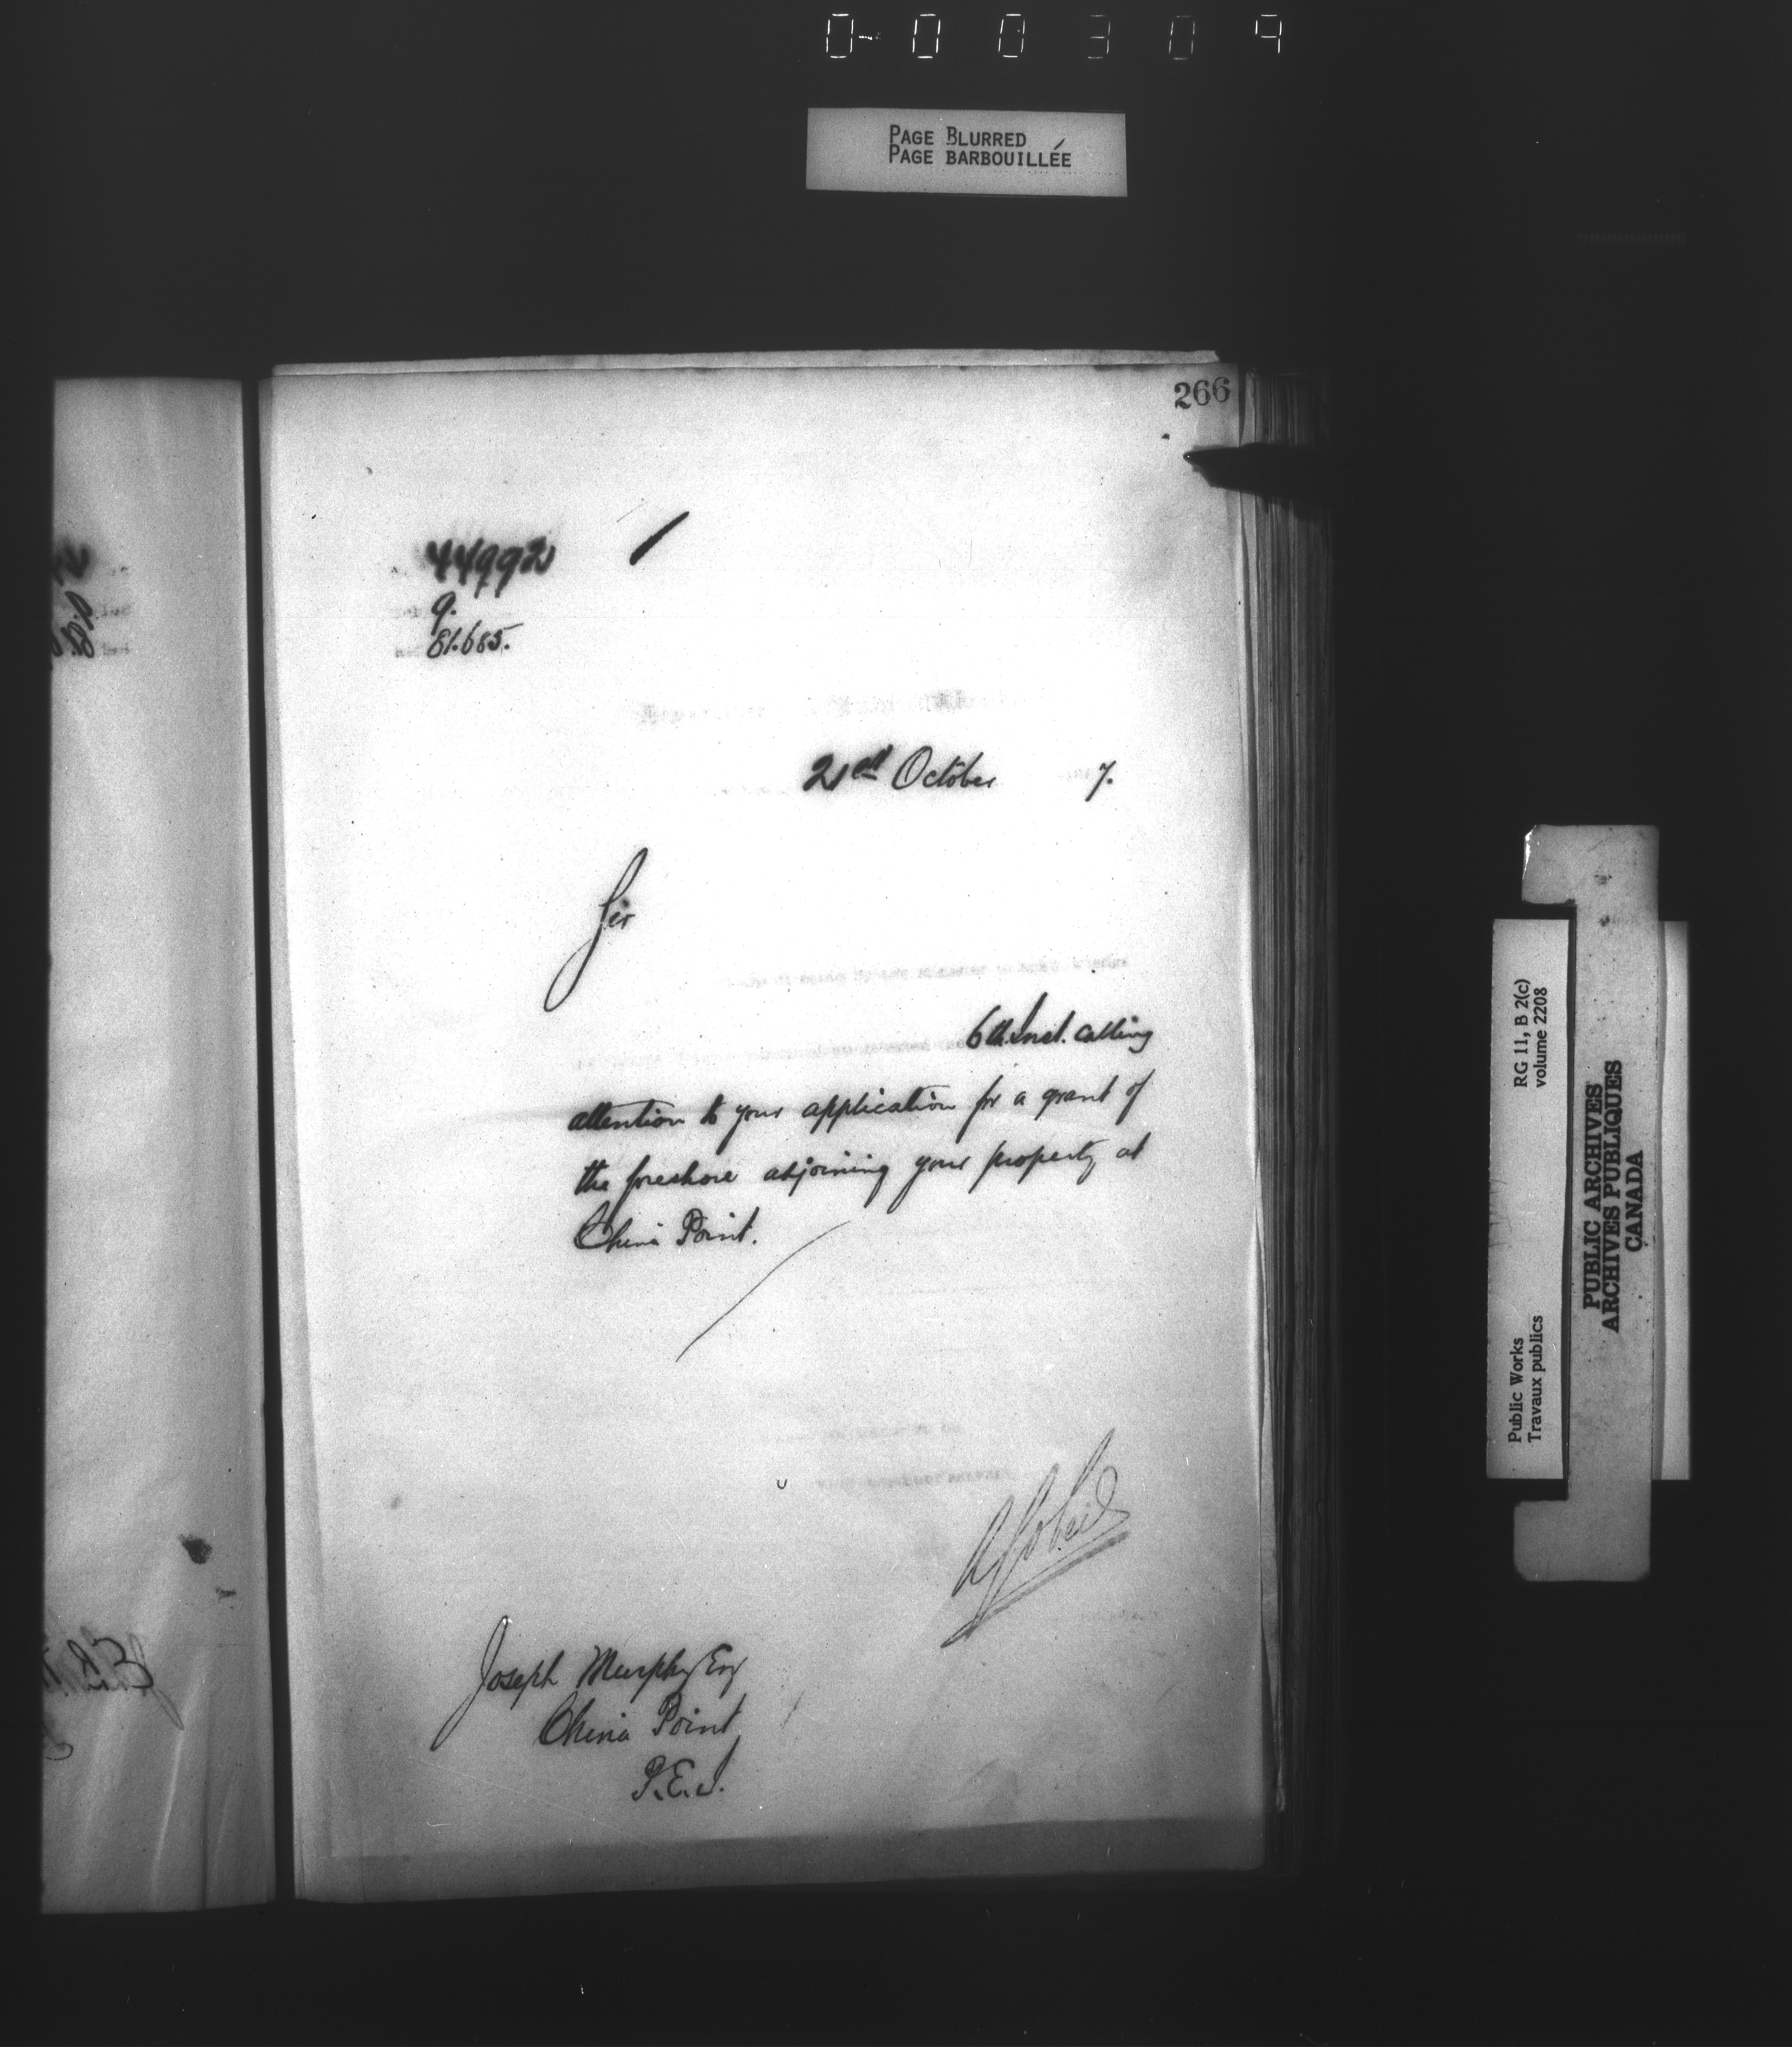 0-00309
PAGE BLURRED
PAGE BARBOUILLÉE
266
44992
9.
81.685.
October 7.
Sir
6th Inst. calling
attention to your application for a grant of
the foreshore adjoining your property at
China Point.
Joseph Murphy Esq
China Point
P.E.I.
RG 11, B 2(c)
volume 2208
Public Works
Travaux publics
PUBLIC ARCHIVES
ARCHIVES PUBLIQUES
CANADA